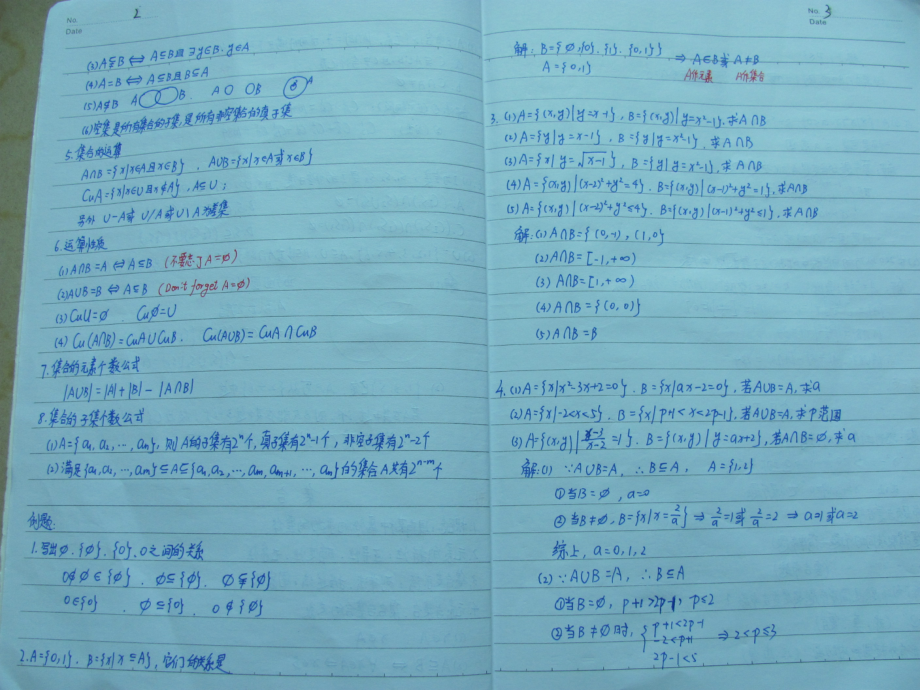 No. 2
Date
(3) A⫋B ⟺ A⊆B且∃y∈B, y∉A
(4) A=B ⟺ A⊆B且B⊆A
(5) A⊄B A B A B A
(6) 空集是所有集合的子集,是所有非空集合的真子集
5. 集合的运算
A∩B={x|x∈A且x∈B}, A∪B={x|x∈A或x∈B}
CuA={x|x∈U且x∉A}, A⊆U;
另外 U-A或 U/A或U\A为补集
6. 运算性质
(1) A∩B=A ⟺ A⊆B (不要忘了A=∅)
(2) A∪B=B ⟺ A⊆B (Don't forget A=∅)
(3) CuU=∅. Cu∅=U
(4) Cu(A∩B)=CuA∪CuB. Cu(A∪B)=CuA∩CuB
7. 集合的元素个数公式
|A∪B|=|A|+|B|-|A∩B|
8. 集合的子集个数公式
(1) A={a₁,a₂,…,aₙ}, 则A的子集有2ⁿ个, 真子集有2ⁿ-1个, 非空子集有2ⁿ-2个
(2) 满足{a₁,a₂,…,aₘ}⊆A⊆{a₁,a₂,…,aₘ,aₘ₊₁,…,aₙ}的集合A共有2ⁿ⁻ᵐ个
例题:
1. 写出∅.{∅}.{0}.0之间的关系
∅∈{∅}. ∅⊆{∅}. ∅⫋{∅}
0∈{0} . ∅⊆{0}. 0∉{∅}
2. A={0,1}. B={x|x⊆A}, 它们的关系是
No. 3
Date
解: B={∅,{0}.{1}.{0,1}} ⇒ A∈B或A≠B
A={0,1} A作元素 A作集合
3. (1) A={(x,y)|y=x-1}, B={(x,y)|y=x²-1}, 求A∩B
(2) A={y|y=x-1}, B={y|y=x²-1}, 求A∩B
(3) A={x|y=√(x-1)}, B={y|y=x²-1}, 求A∩B
(4) A={(x,y)|(x-2)²+y²=4}. B={(x,y)|(x-1)²+y²=1}, 求A∩B
(5) A={(x,y)|(x-2)²+y²≤4}. B={(x,y)|(x-1)²+y²≤1}, 求A∩B
解: (1) A∩B={(0,-1),(1,0)}
(2) A∩B=[-1,+∞)
(3) A∩B=[1,+∞)
(4) A∩B={(0,0)}
(5) A∩B=B
4. (1) A={x|x²-3x+2=0}. B={x|ax-2=0}, 若A∪B=A, 求a
(2) A={x|-2<x<5}, B={x|p+1<x<2p-1}, 若A∪B=A, 求P范围
(3) A={(x,y)|(y-3)/(x-2)=1}. B={(x,y)|y=ax+2}, 若A∩B=∅, 求a
解: (1) ∵A∪B=A, ∴B⊆A, A={1,2}
①当B=∅, a=0
②当B≠∅, B={x|x=2/a} ⇒ 2/a=1或2/a=2 ⇒ a=1或a=2
综上, a=0,1,2
(2) ∵A∪B=A, ∴B⊆A
①当B=∅, p+1≥2p-1, p≤2
②当B≠∅时, { p+1<2p-1
-2≤p+1 ⇒ 2<p≤3
2p-1≤5